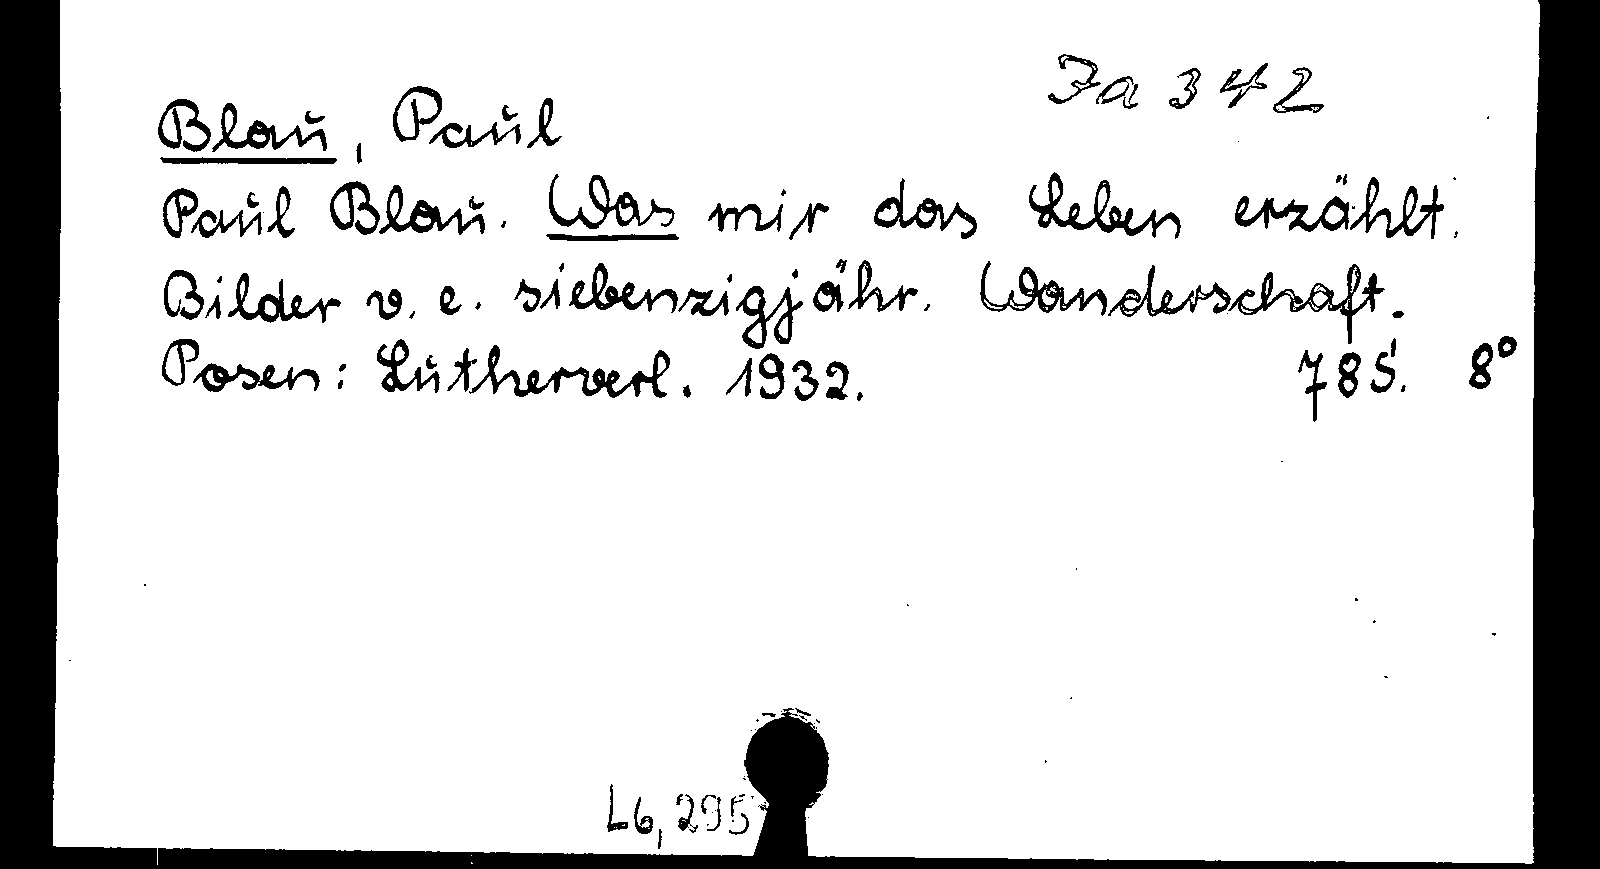 Ja 342
Blau, Paul
Paul Blau. Was mir das Leben erzählt.
Bilder v. e. siebenzigjähr. Wanderschaft.
Posen: Lutherverl. 1932. 78 S. 8°
L6, 295